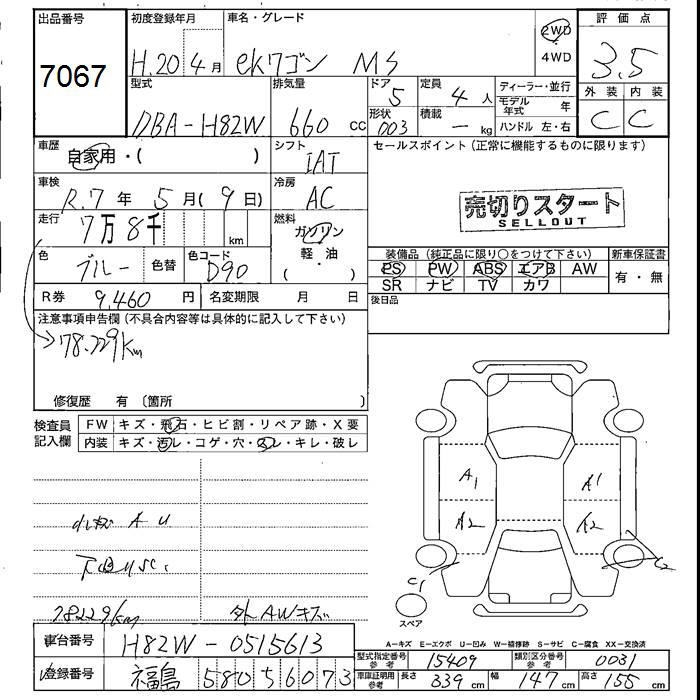 出品番号 初度登録年月 車名・グレード 2WD 4WD 評価点
7067 H.20 4月 ekワゴン MS 3.5
型式 排気量 ドア 定員 ティーラー・並行 外装 内装
DBA-H82W 660 cc 5 4人 モデル年式 年 C C
形状 003 積載 — kg ハンドル 左・右
車歴 自家用・( ) シフト IAT セールスポイント (正常に機能するものに限ります)
車検 R.7年 5月(9日) 冷房 AC 売切りスタート
SELLOUT
走行 7万8千 km 燃料 ガソリン 軽油 ( )
色 ブルー 色替 色コード D90 装備品 (純正品に限り○をつけて下さい) 新車保証書
PS PW ABS エアB AW 有・無
SR ナビ TV カワ
R券 9,460円 名変期限 月 日 後日品
注意事項申告欄 (不具合内容等は具体的に記入して下さい)
78.229Km
修復歴 有 (箇所 )
検査員記入欄 FW キズ・飛石・ヒビ割・リペア跡・X要
内装 キズ・汚レ・コゲ・穴・スレ・キレ・破レ
A1 A1
A2 A2
C2
C1
スペア
小キズ A U
下回りSC
78229km 外AWキズ
A—キズ E—エクボ U—凹み W—補修跡 S—サビ C—腐食 XX—交換済
車台番号 H82W-0515613 型式指定番号 参考 15409 類別区分番号 参考 0031
登録番号 福島 580 5 6073 車庫証明用 参考 長さ 339 cm 幅 147 cm 高さ 155 cm